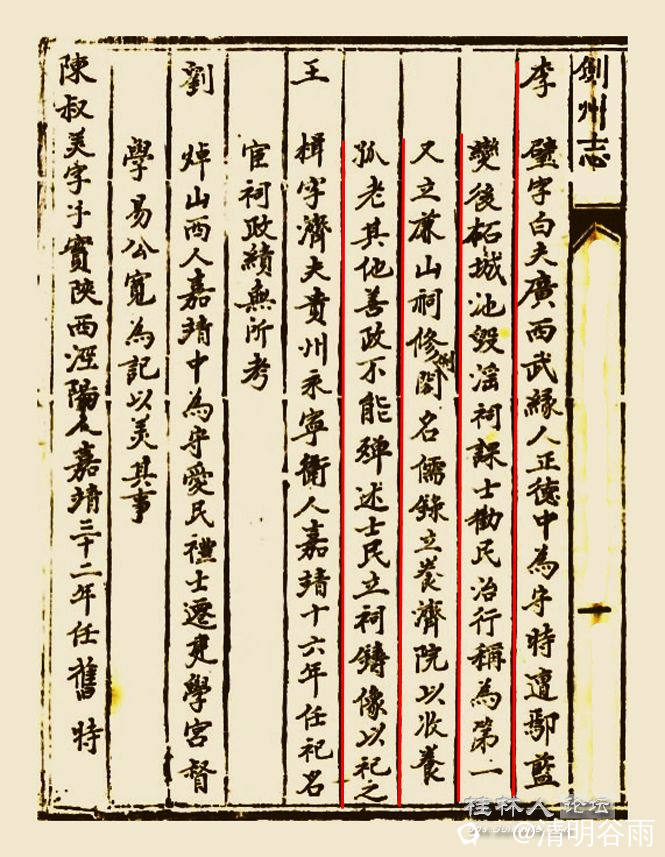 劍州志
李璧字白夫廣西武緣人正德中為守時遭鄢藍
變後柘城池毀滛祠課士勸民治行稱為第一
又立兼山祠修劍閣名儒錄立養濟院以收養
孤老其他善政不能殫述士民立祠鑄像以祀之
王楫字濟夫貴州永寧衛人嘉靖十六年任祀名
宦祠政績無所考
劉焯山西人嘉靖中為守愛民禮士遷建學宮督
學易公寬為記以美其事
陳叔美字子實陝西涇陽人嘉靖三十二年任舊時
桂林人论坛
@清明谷雨